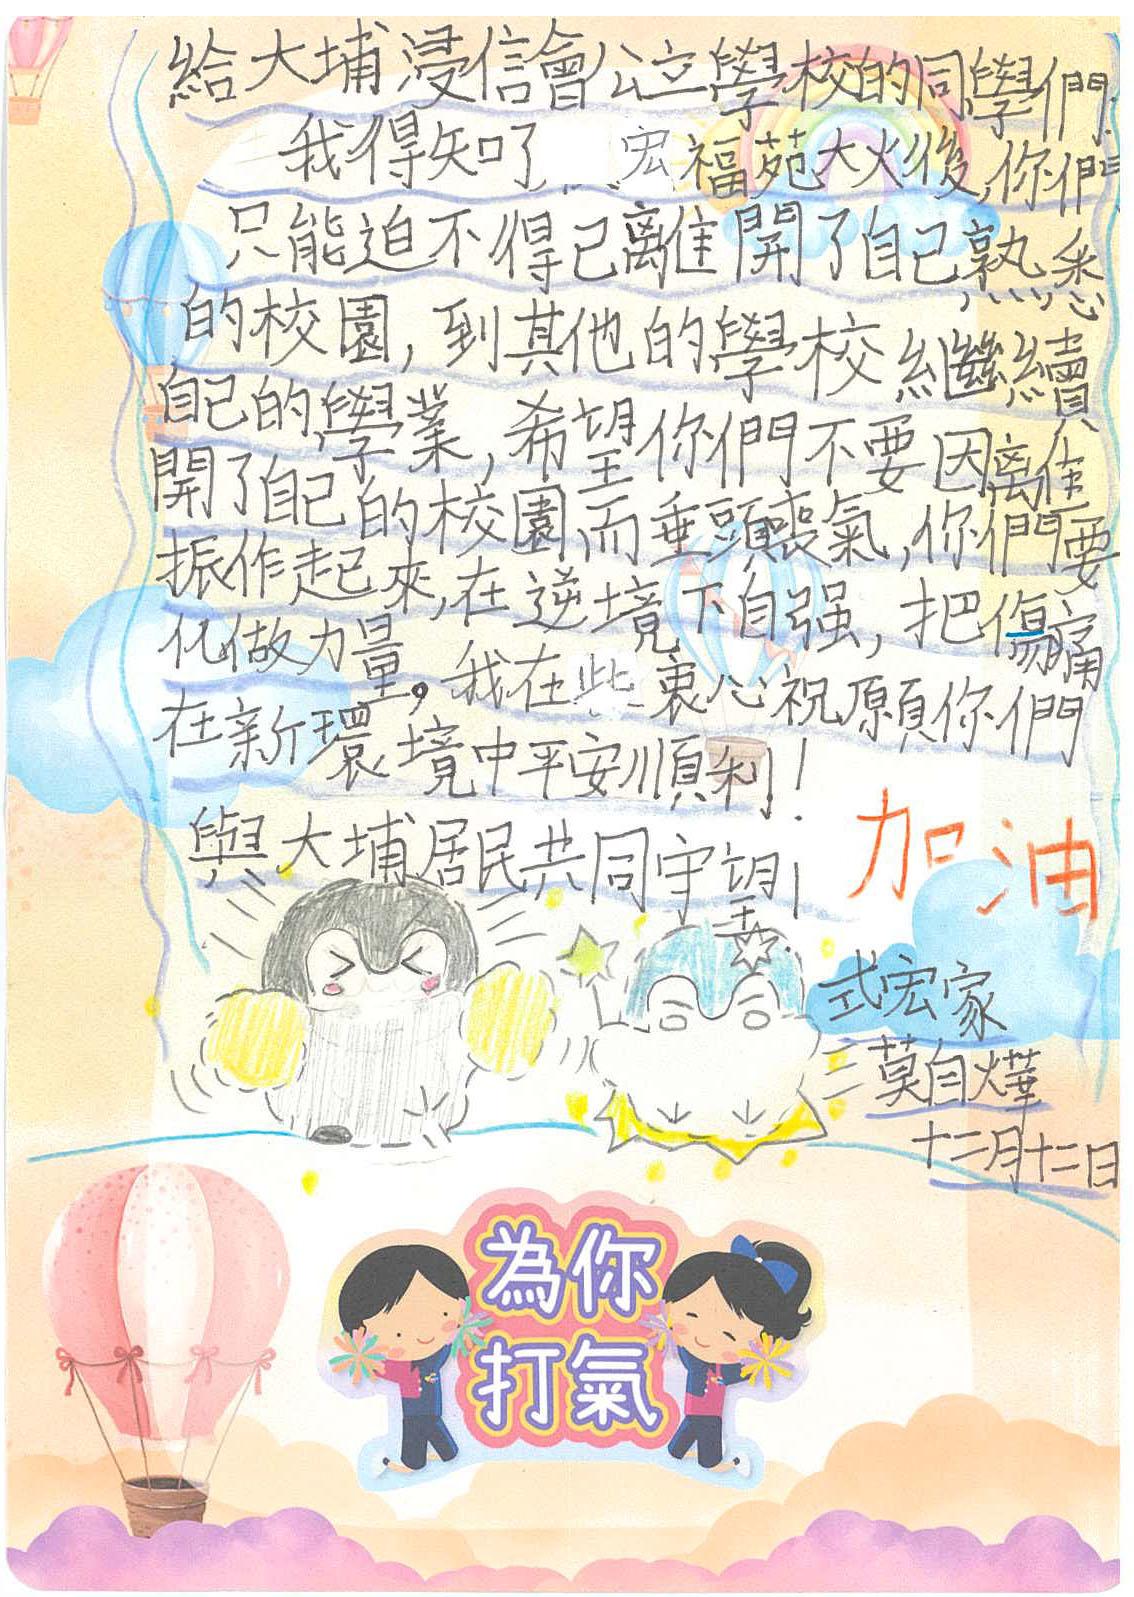 給大埔浸信會公立學校的同學們:
我得知了宏福苑大火後,你們
只能迫不得已離開了自己熟悉
的校園,到其他的學校繼續
自己的學業,希望你們不要因離
開了自己的校園而垂頭喪氣,你們要
振作起來,在逆境下自强,把傷痛
化做力量,我在此衷心祝願你們
在新環境中平安順利!
與大埔居民共同守望!
加油
式宏家
莫自燁
十二月十二日
為你
打氣